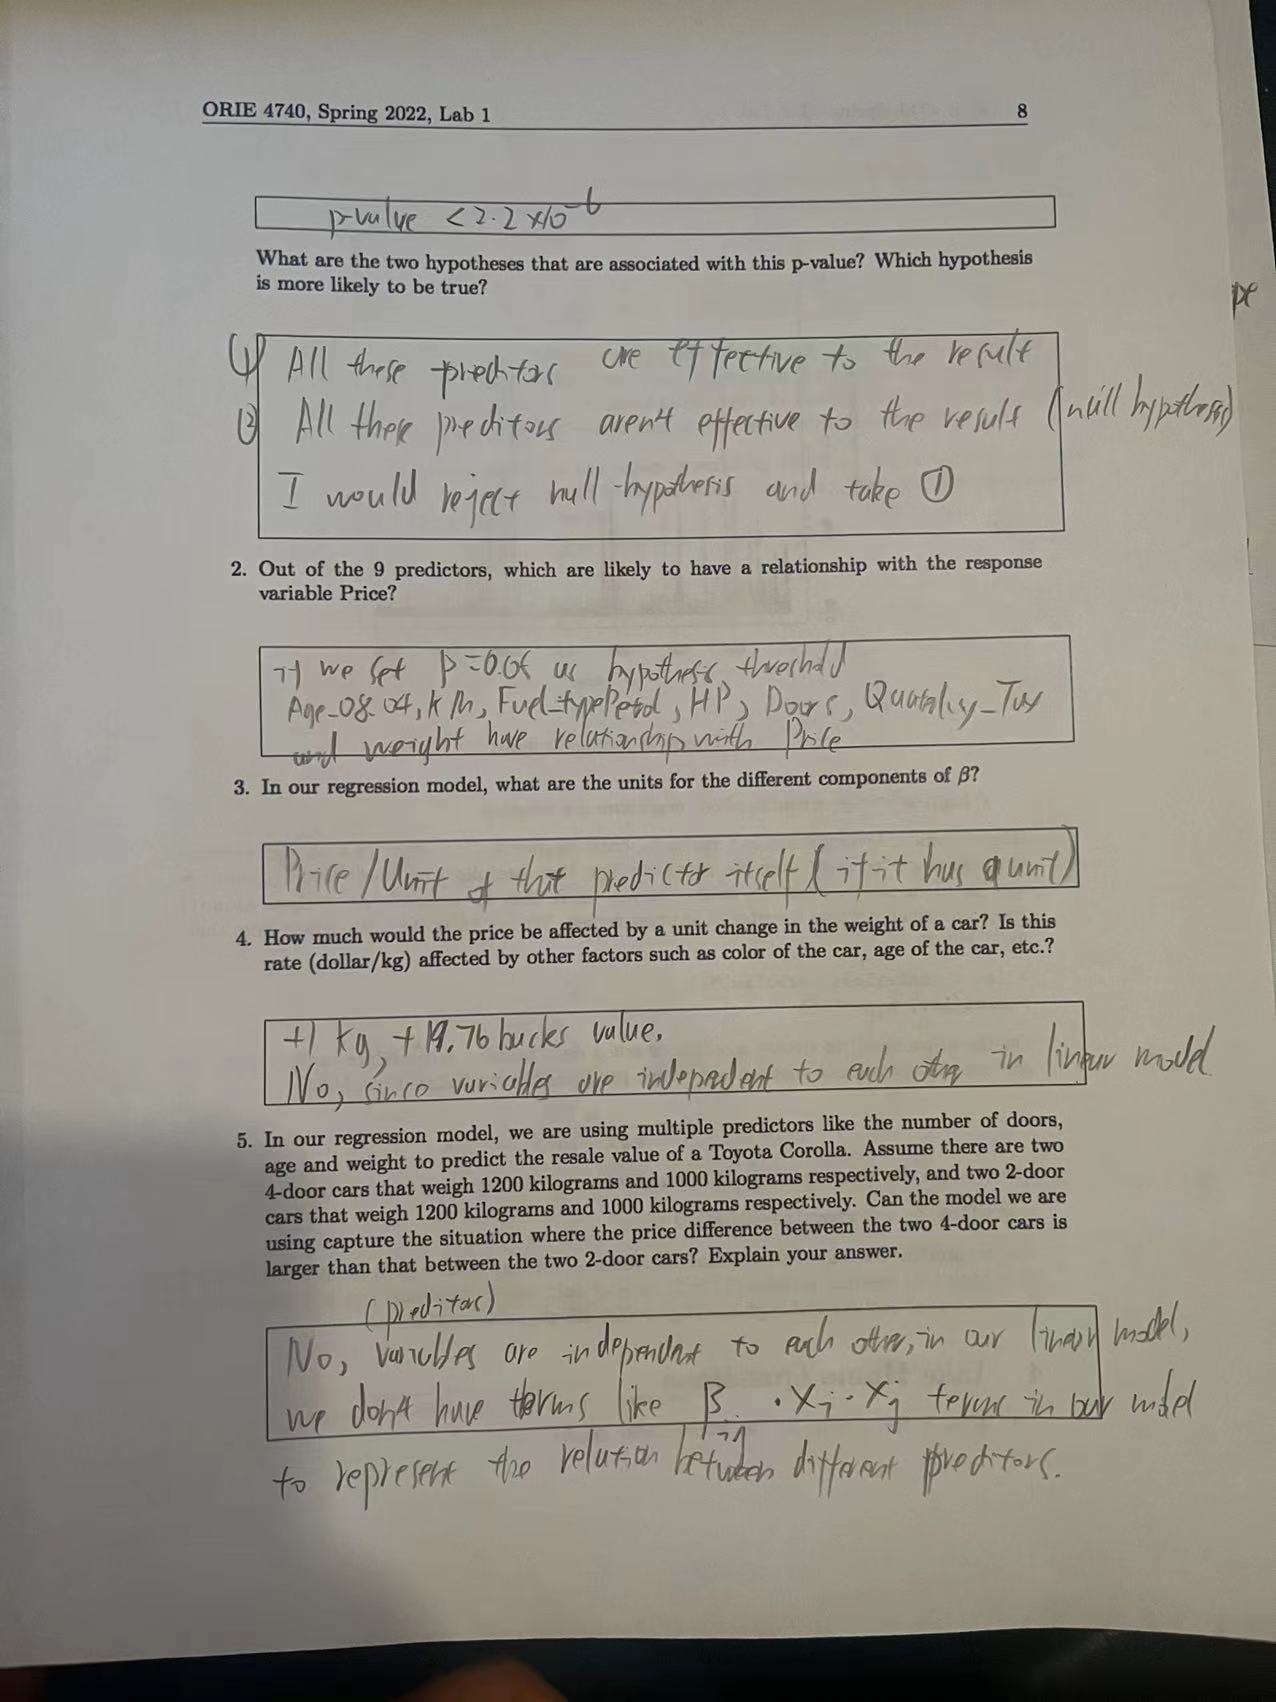 ORIE 4740, Spring 2022, Lab 1 8
p-value < 2.2 x10^-6
What are the two hypotheses that are associated with this p-value? Which hypothesis
is more likely to be true?
pe
① All these preditors are effective to the result
② All these preditors aren't effective to the result (null hypothesis)
I would reject null-hypothesis and take ①
2. Out of the 9 predictors, which are likely to have a relationship with the response
variable Price?
if we set p=0.05 as hypothesis threshold
Age_08_04, KM, Fuel_typePetrol, HP, Doors, Quartely_Tax
and weight have relationship with Price
3. In our regression model, what are the units for the different components of β?
Price/Unit of that predictor itself (if it has a unit)
4. How much would the price be affected by a unit change in the weight of a car? Is this
rate (dollar/kg) affected by other factors such as color of the car, age of the car, etc.?
+1 kg, +19.76 bucks value.
No, since variables are indepedent to each other in linear model
5. In our regression model, we are using multiple predictors like the number of doors,
age and weight to predict the resale value of a Toyota Corolla. Assume there are two
4-door cars that weigh 1200 kilograms and 1000 kilograms respectively, and two 2-door
cars that weigh 1200 kilograms and 1000 kilograms respectively. Can the model we are
using capture the situation where the price difference between the two 4-door cars is
larger than that between the two 2-door cars? Explain your answer.
(preditors)
No, variables are independent to each other, in our linear model,
we don't have terms like β i,j · Xi · Xj terms in our model
to represent the relation between different preditors.